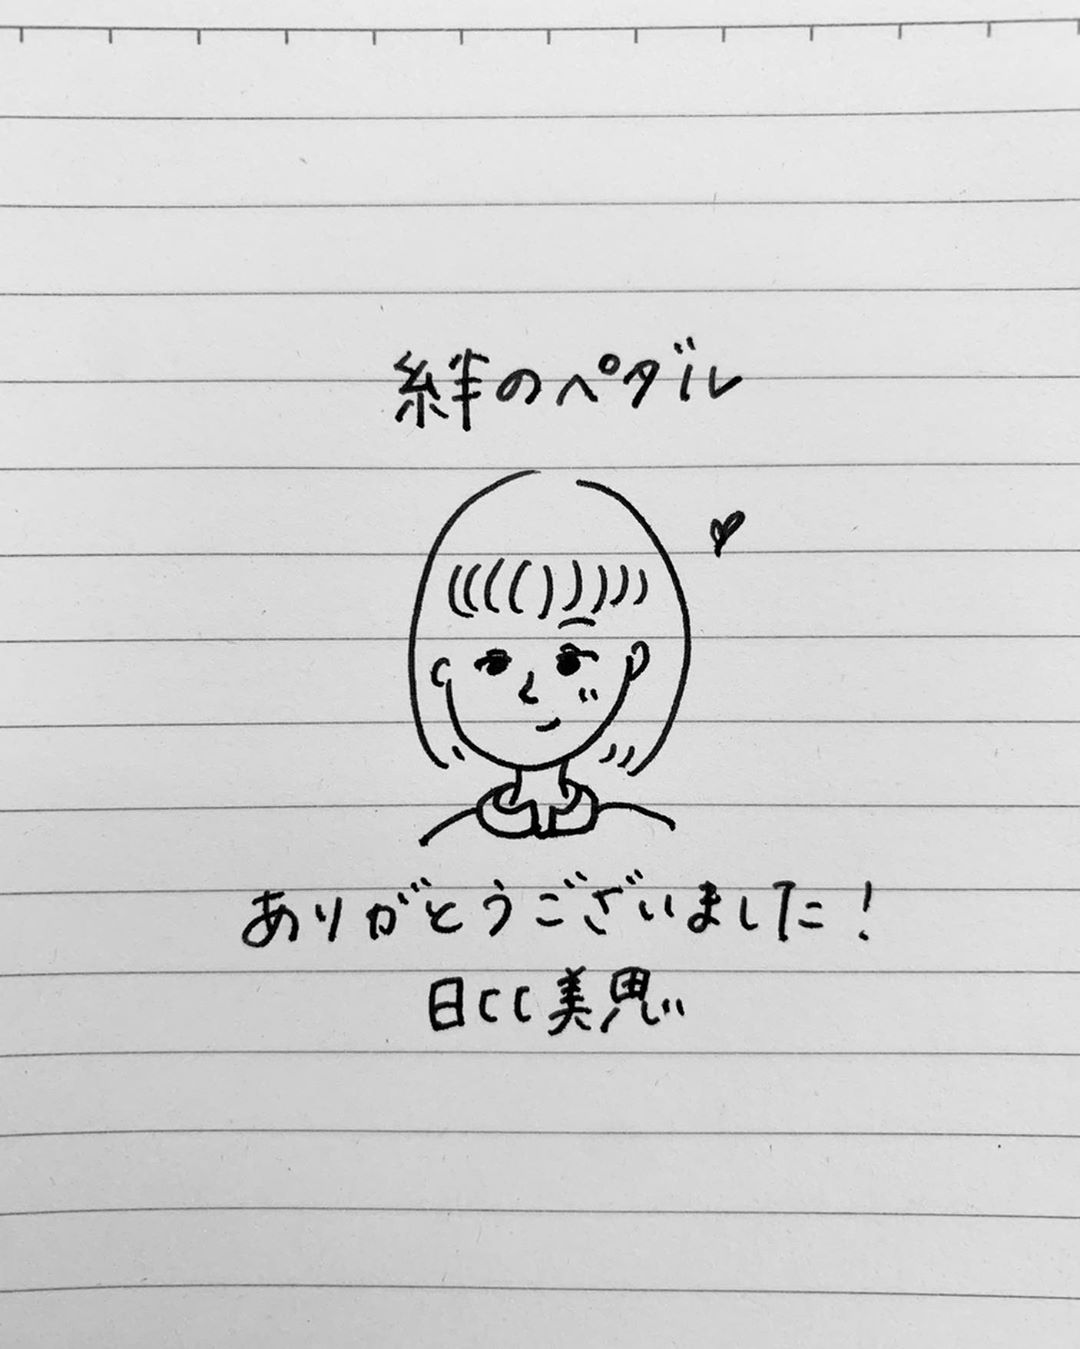 絆のペダル
ありがとうございました!
日比美思